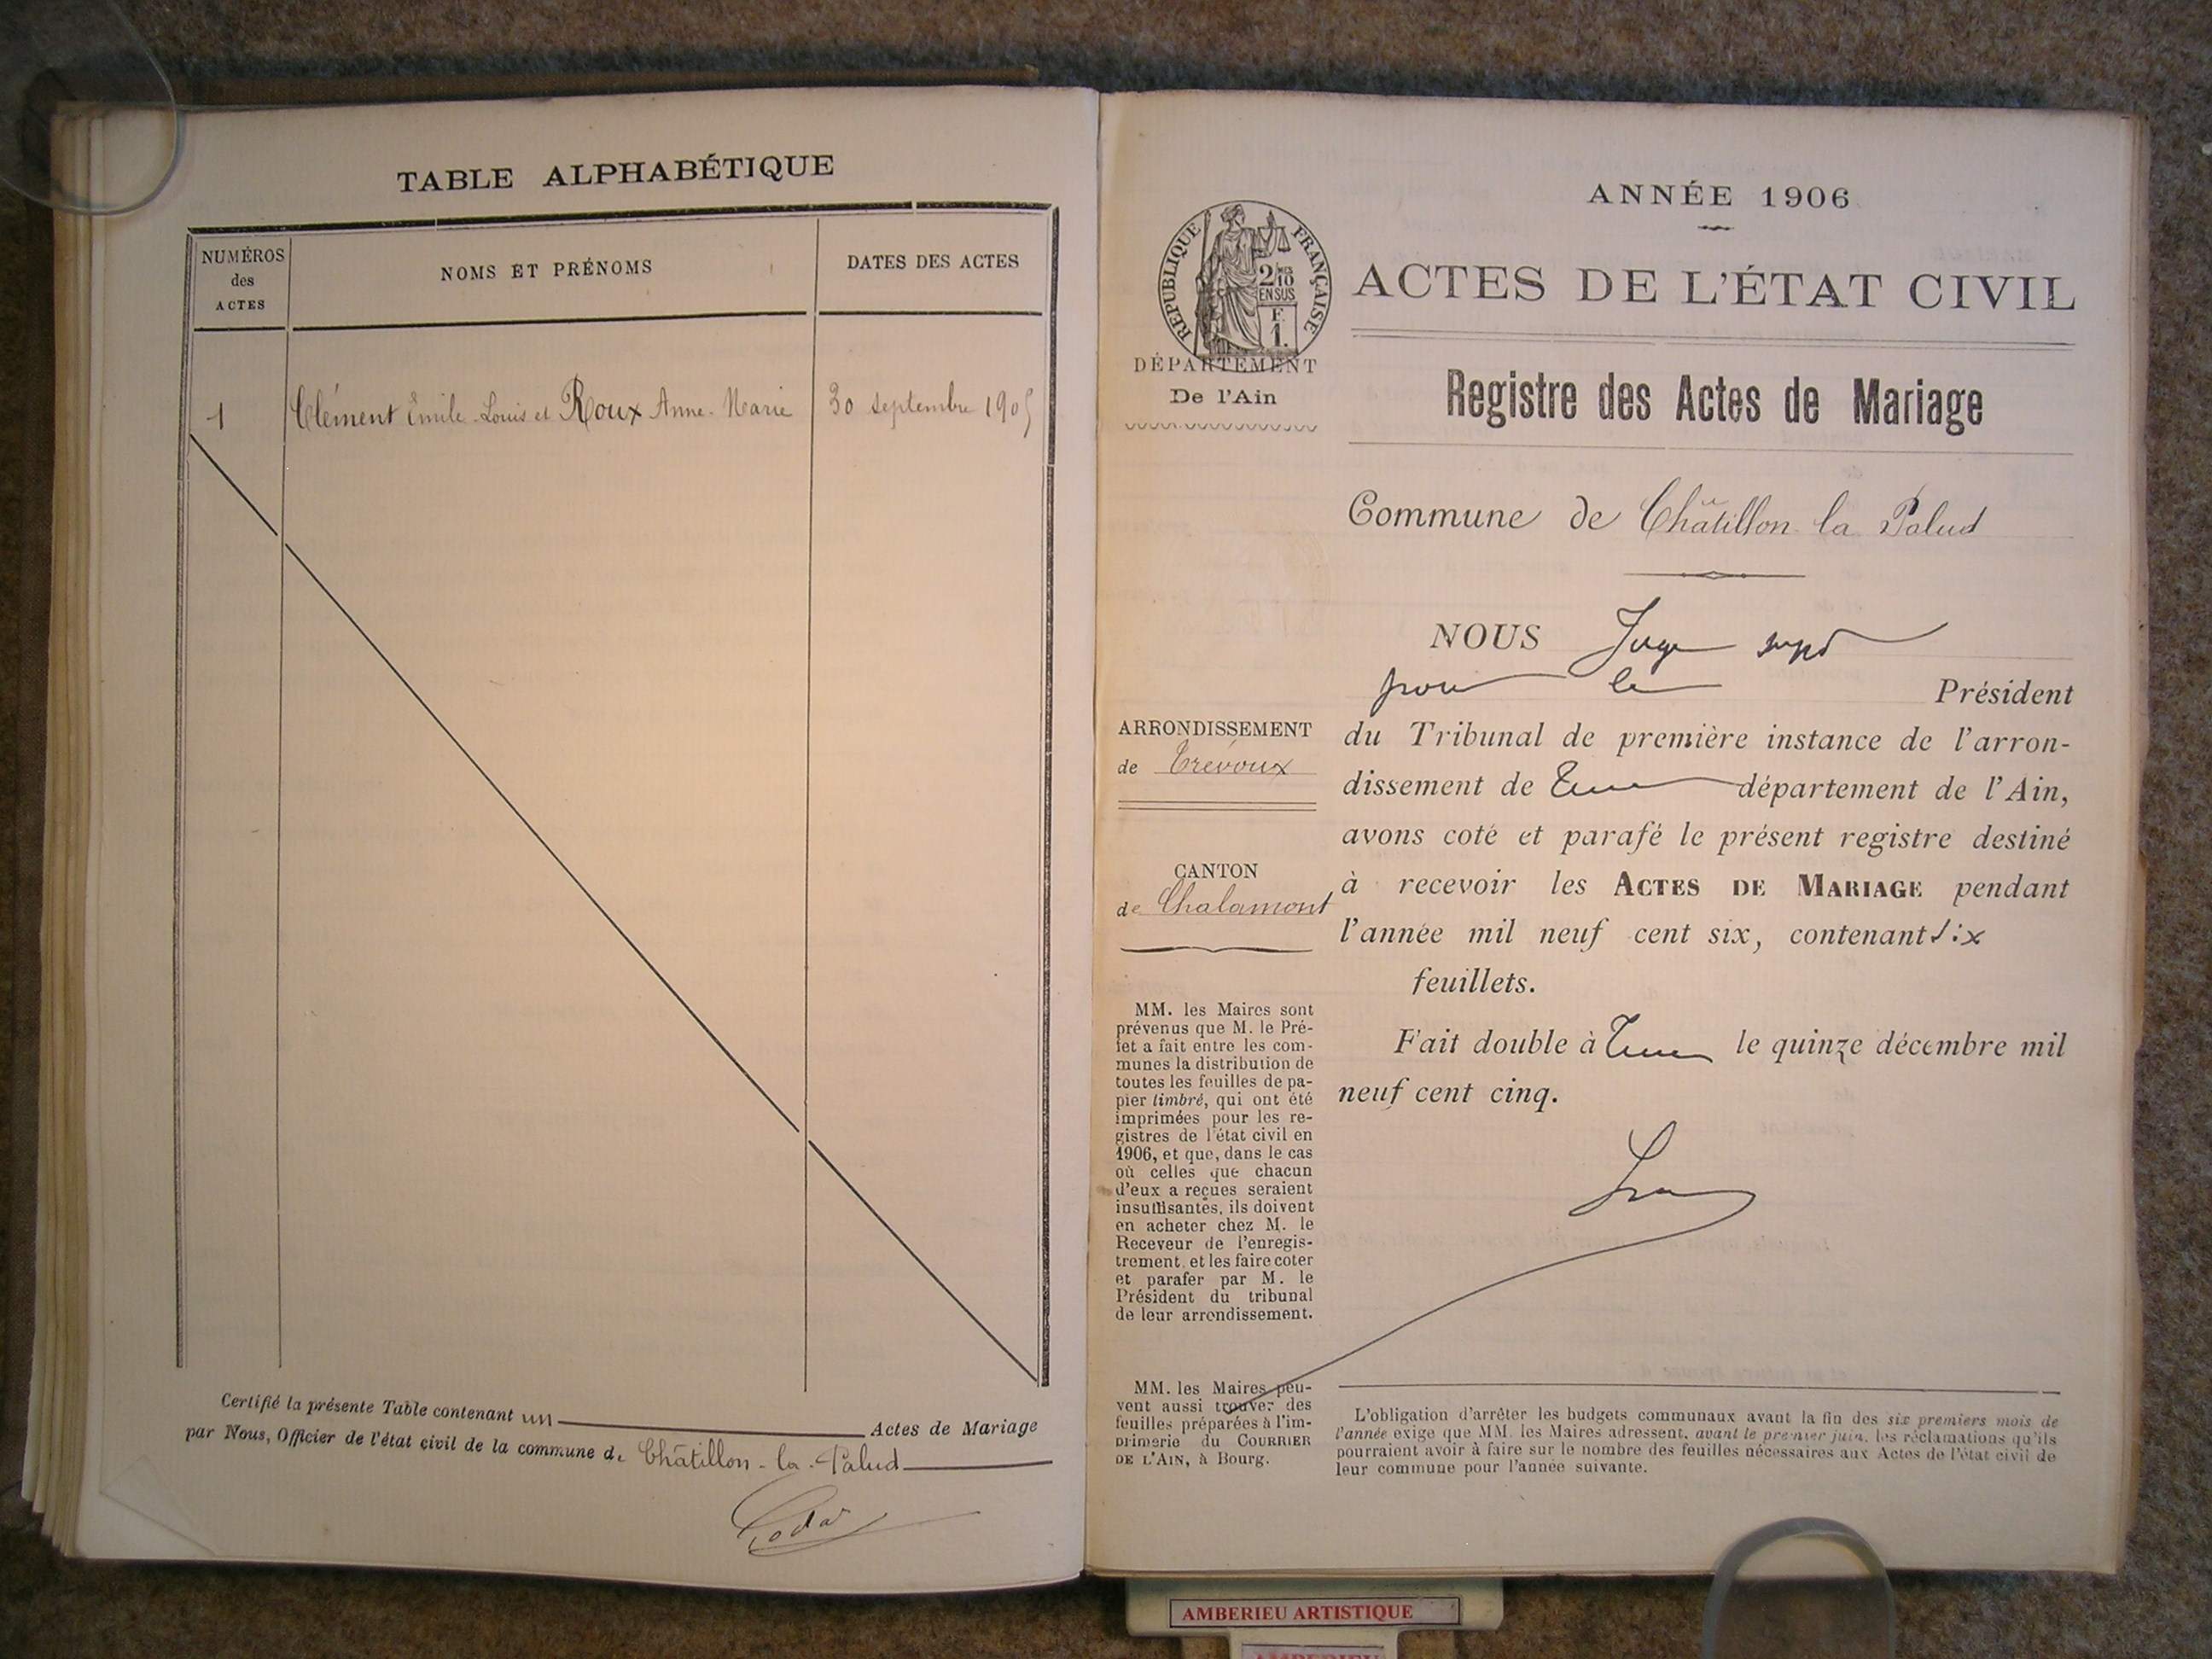 TABLE ALPHABÉTIQUE
NUMÉROS
des
ACTES
NOMS ET PRÉNOMS
DATES DES ACTES
1
Clément Émile-Louis et Roux Anne-Marie
30 septembre 1905
Certifié la présente Table contenant un Actes de Mariage
par Nous, Officier de l'état civil de la commune de Châtillon-la-Palud
ANNÉE 1906
RÉPUBLIQUE FRANÇAISE
2/10
EN SUS
F.
1.
DÉPARTEMENT
De l'Ain
ACTES DE L'ÉTAT CIVIL
Registre des Actes de Mariage
Commune de Châtillon la Palud
ARRONDISSEMENT
de Trévoux
CANTON
de Chalamont
MM. les Maires sont
prévenus que M. le Pré-
fet a fait entre les com-
munes la distribution de
toutes les feuilles de pa-
pier timbré, qui ont été
imprimées pour les re-
gistres de l'état civil en
1906, et que, dans le cas
où celles que chacun
d'eux a reçues seraient
insuffisantes, ils doivent
en acheter chez M. le
Receveur de l'enregis-
trement, et les faire coter
et parafer par M. le
Président du tribunal
de leur arrondissement.
MM. les Maires peu-
vent aussi trouver des
feuilles préparées à l'im-
primerie du COURRIER
DE L'AIN, à Bourg.
NOUS Juge
pour le Président
du Tribunal de première instance de l'arron-
dissement de département de l'Ain,
avons coté et parafé le présent registre destiné
à recevoir les ACTES DE MARIAGE pendant
l'année mil neuf cent six, contenant six
feuillets.
Fait double à le quinze décembre mil
neuf cent cinq.
L'obligation d'arrêter les budgets communaux avant la fin des six premiers mois de
l'année exige que MM. les Maires adressent, avant le premier juin, les réclamations qu'ils
pourraient avoir à faire sur le nombre des feuilles nécessaires aux Actes de l'état civil de
leur commune pour l'année suivante.
AMBERIEU ARTISTIQUE
AMBERIEU